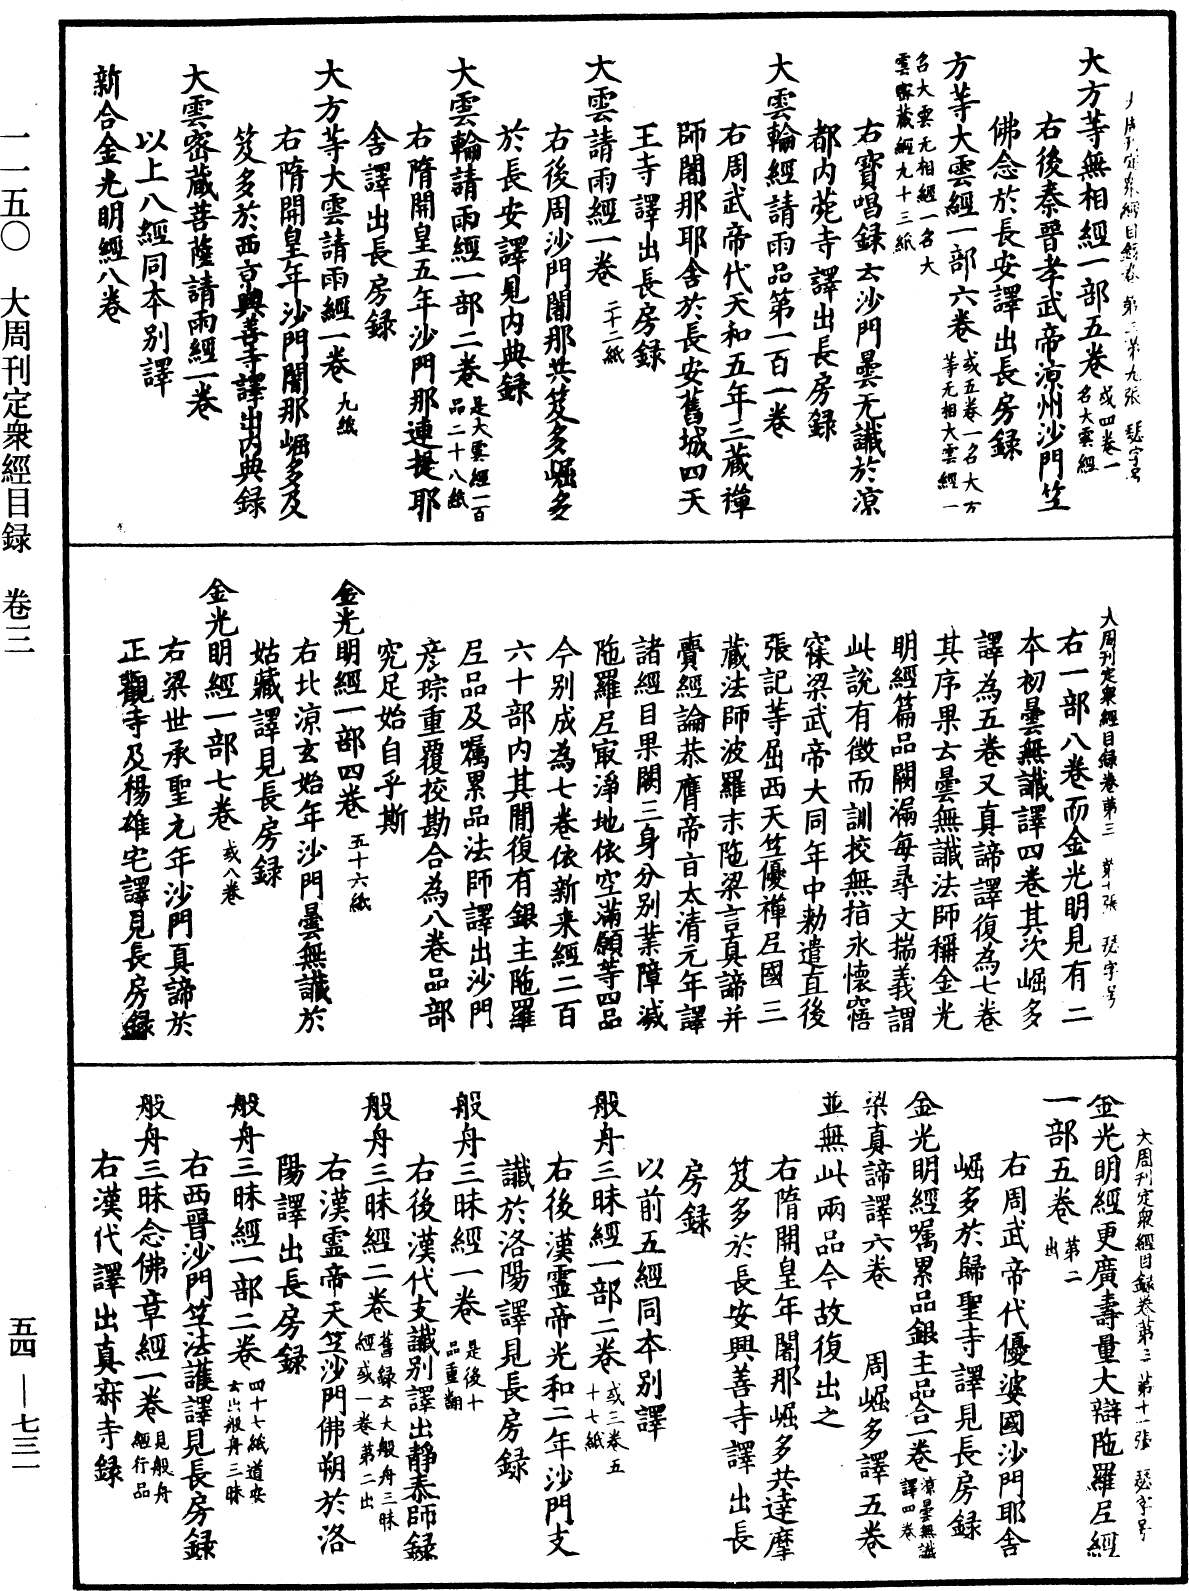 大周刊定衆經目録卷第三 第九張 瑟字号
大方等無相經一部五卷 或四卷一名大雲經
右後秦晉孝武帝涼州沙門竺
佛念於長安譯出長房録
方等大雲經一部六卷 或五卷一名大方等无相大雲經一
名大雲无相經一名大雲密藏經九十三紙
右寳唱録云沙門曇无讖於涼
都内菀寺譯出長房録
大雲輪經請雨品第一百一卷
右周武帝代天和五年三藏禪
師闍那耶舍於長安舊城四天
王寺譯出長房録
大雲請雨經一卷 二十二紙
右後周沙門闍那共笈多崛多
於長安譯見内典録
大雲輪請雨經一部二卷 是大雲經一百品二十八紙
右隋開皇五年沙門那連提耶
舍譯出長房録
大方等大雲請雨經一卷 九紙
右隋開皇年沙門闍那崛多及
笈多於西京興善寺譯出内典録
大雲密藏菩薩請雨經一卷
以上八經同本别譯
新合金光明經八卷
大周刊定衆經目録卷第三 第十張 瑟字号
右一部八卷而金光明見有二
本初曇無讖譯四卷其次崛多
譯為五卷又真諦譯復為七卷
其序果云曇無讖法師稱金光
明經篇品闕漏每尋文揣義謂
此說有徵而訓挍無指永懷寤
寐梁武帝大同年中勑遣直後
張記等屈西天竺優禪尼國三
藏法師波羅末陁梁言真諦并
賷經論恭膺帝旨太清元年譯
諸經目果闕三身分别業障滅
陁羅尼㝡淨地依空滿願等四品
今别成為七卷依新来經二百
六十部内其間復有銀主陁羅
尼品及囑累品法師譯出沙門
彦琮重覆挍勘合為八卷品部
究足始自乎斯
金光明經一部四卷 五十六紙
右北涼玄始年沙門曇無讖於
姑藏譯見長房録
金光明經一部七卷 或八卷
右梁世承聖元年沙門真諦於
正觀寺及楊雄宅譯見長房録
大周刊定衆經目録卷第三 第十一張 瑟字号
金光明經更廣壽量大辯陁羅尼經
一部五卷 第二出
右周武帝代優婆國沙門耶舍
崛多於歸聖寺譯見長房録
金光明經囑累品銀主品合一卷 涼曇無讖譯四卷
梁真諦譯六卷 周崛多譯五卷
並無此兩品今故復出之
右隋開皇年闍那崛多共達摩
笈多於長安興善寺譯出長
房録
以前五經同本别譯
般舟三昧經一部二卷 或三卷五十七紙
右後漢靈帝光和二年沙門支
讖於洛陽譯見長房録
般舟三昧經一卷 是後十品重翻
右後漢代支讖别譯出靜泰師録
般舟三昧經二卷 舊録云大般舟三昧經或一卷第二出
右漢靈帝天竺沙門佛朔於洛
陽譯出長房録
般舟三昧經一部二卷 四十七紙道安云出般舟三昧
右西晉沙門竺法護譯見長房録
般舟三昧念佛章經一卷 見般舟經行品
右漢代譯出真寂寺録
一一五〇 大周刊定衆經目録 卷三
五四——七三一